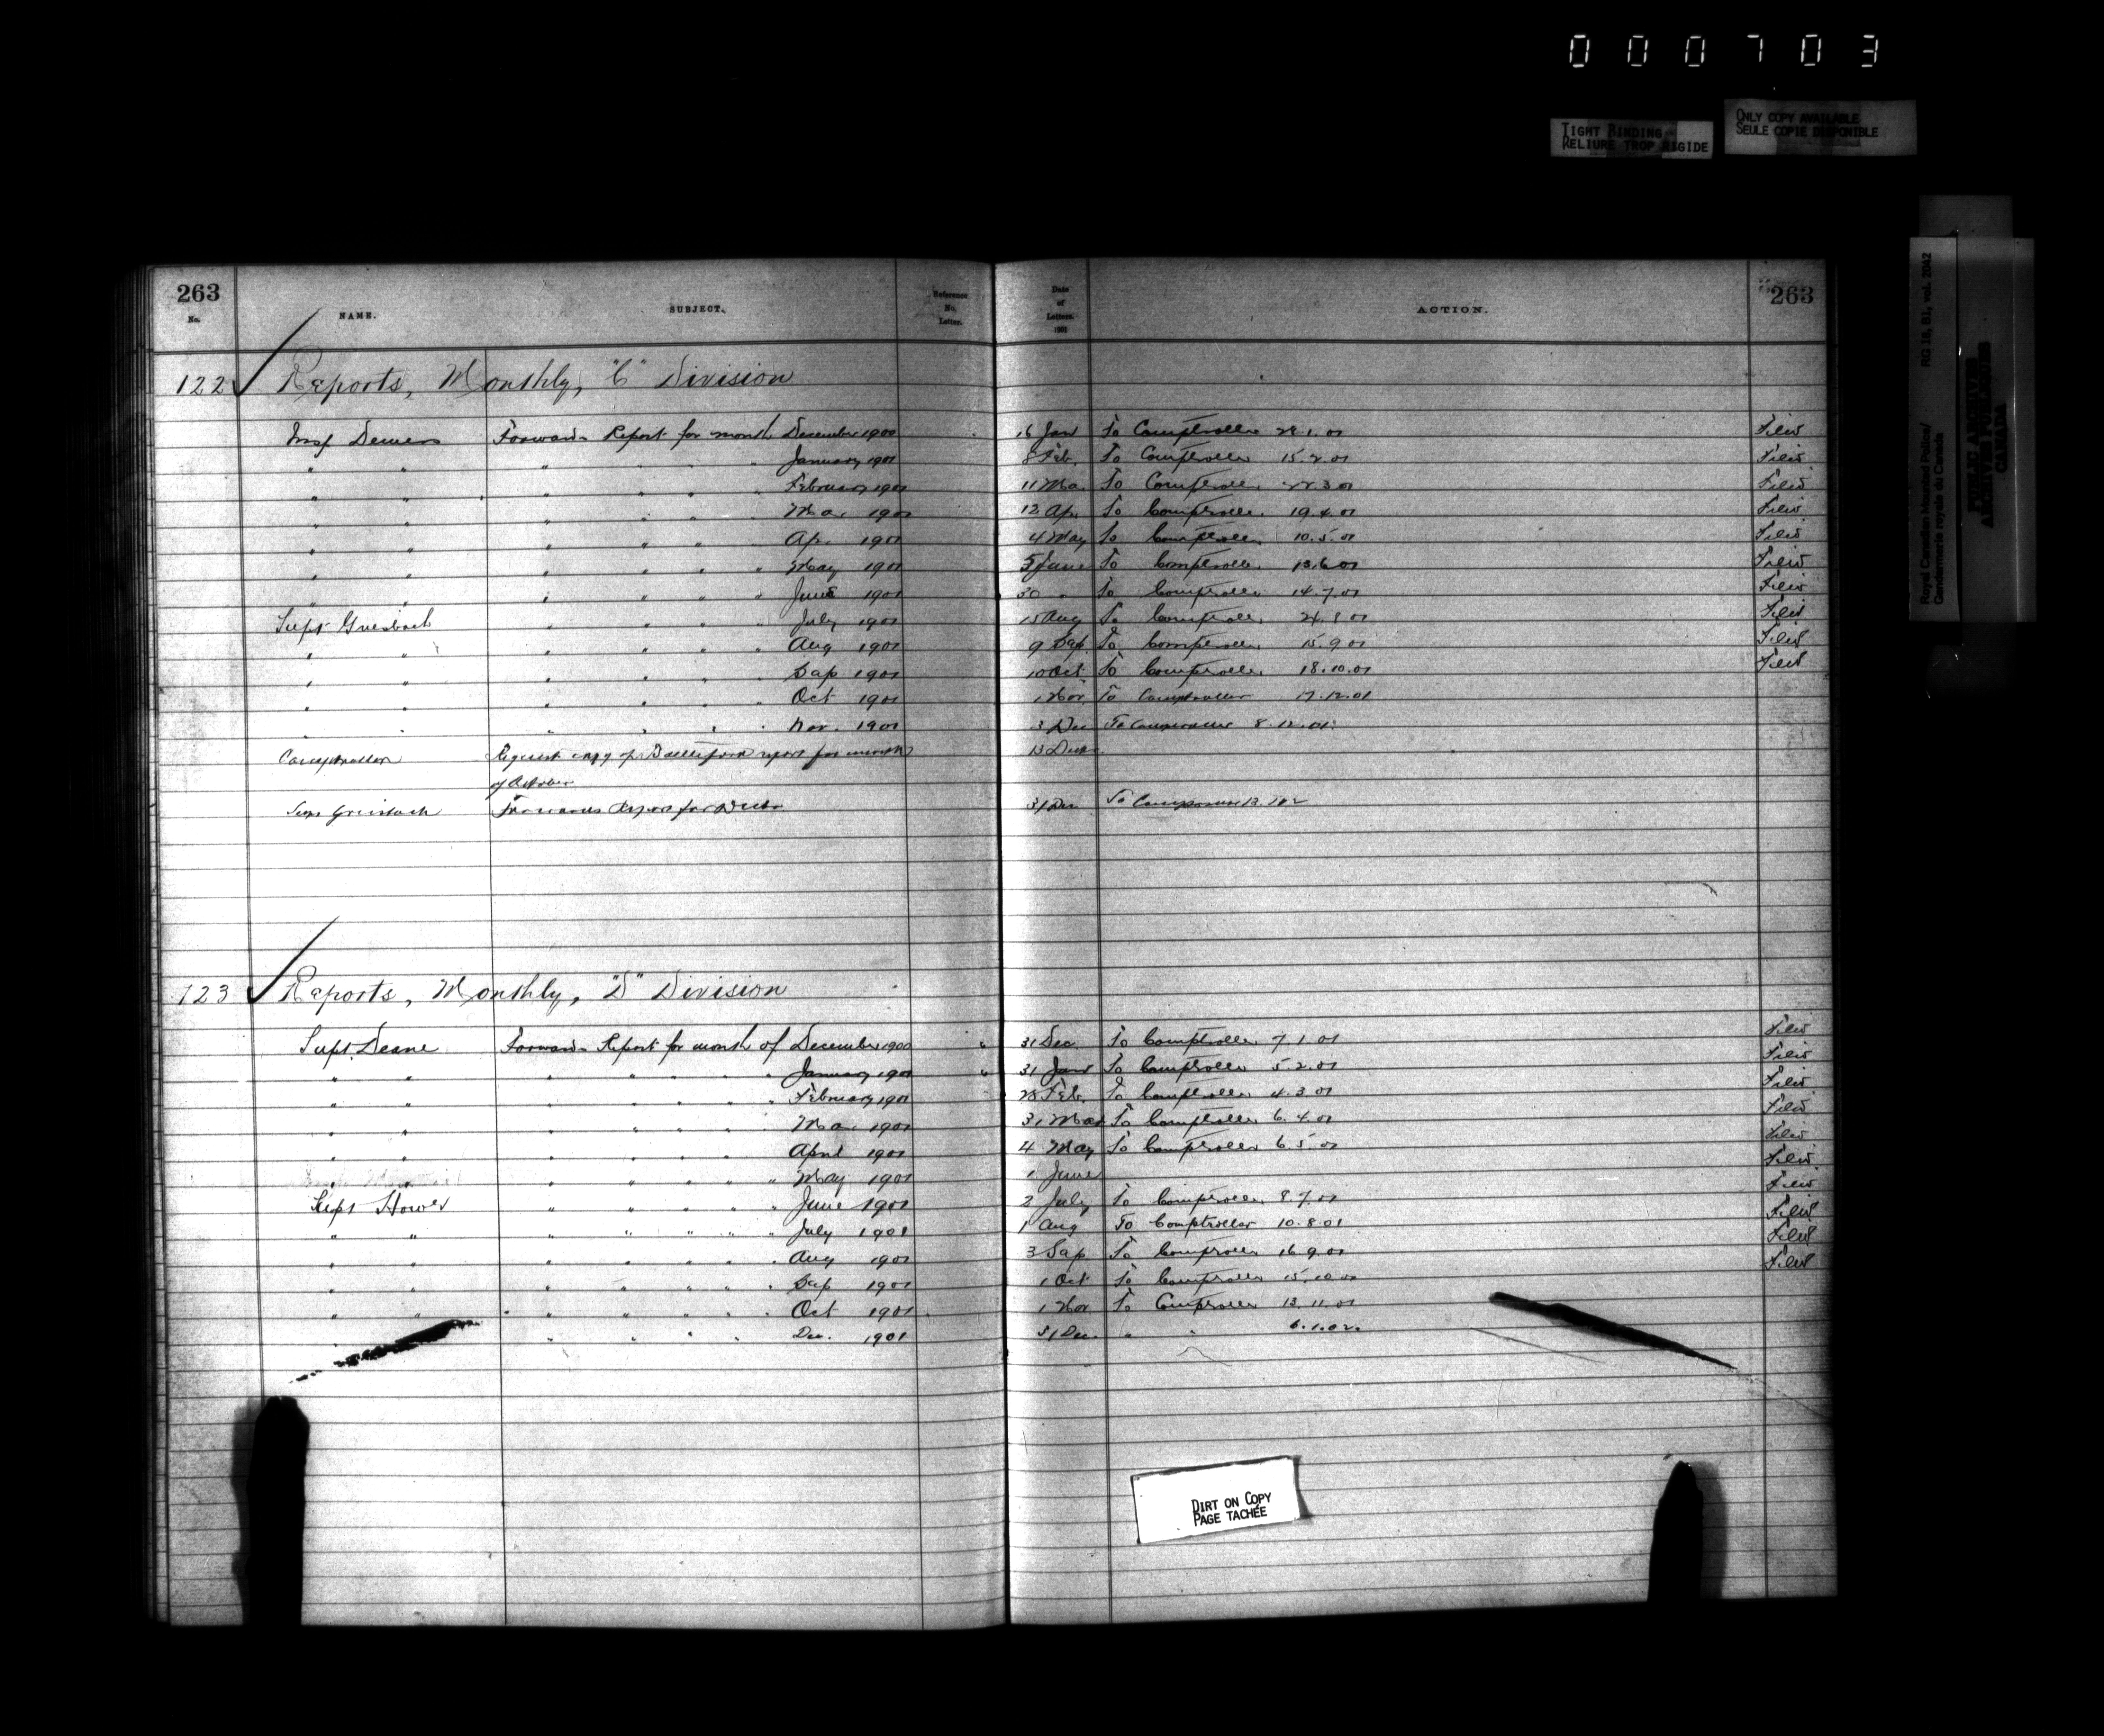 000703
TIGHT BINDING
RELIURE TROP RIGIDE
ONLY COPY AVAILABLE
SEULE COPIE DISPONIBLE
Royal Canadian Mounted Police/ RG 18, B1, vol. 2042
Gendarmerie royale du Canada
PUBLIC ARCHIVES
ARCHIVES PUBLIQUES
CANADA
263 263
No. NAME. SUBJECT. Reference No. Letter. Date of Letters. 1901 ACTION.
122 Reports, Monthly, "C" Division
Insp Demers Forwards Report for month December 1900 16 Jan To Comptroller 28.1.01 Filed
" " " " " " January 1901 8 Feb. To Comptroller 15.2.01 Filed
" " " " " " February 1901 11 Mar To Comptroller 22.3.01 Filed
" " " " " " Mar 1901 12 Apr To Comptroller 19.4.01 Filed
" " " " " " Apr. 1901 4 May To Comptroller 10.5.01 Filed
" " " " " " May 1901 5 June To Comptroller 13.6.01 Filed
" " " " " " June 1901 30 " To Comptroller 14.7.01 Filed
Supt Griesbach " " " " July 1901 15 Aug To Comptroller 24.8.01 Filed
" " " " " " Aug 1901 9 Sep. To Comptroller 15.9.01 Filed
" " " " " " Sep 1901 10 Oct. To Comptroller 18.10.01 Filed
" " " " " " Oct 1901 1 Nov. To Comptroller 17.12.01
" " " " " " Nov. 1901 3 Dec To Comptroller 8.12.01
Comptroller Request copy of Battleford report for month 13 Dec
of October
Supt Griesbach Forwards Report for Decbr 31 Dec To Comptroller
123 Reports, Monthly, "D" Division
Supt. Deane Forwards Report for month of December 1900 " 31 Dec. To Comptroller 7.1.01 Filed
" " " " " " " January 1901 " 31 Jan To Comptroller 5.2.01 Filed
" " " " " " " February 1901 28 Feb. To Comptroller 4.3.01 Filed
" " " " " " " Mar 1901 31 Mar To Comptroller 6.4.01 Filed
" " " " " " " April 1901 4 May To Comptroller 6.5.01 Filed
" " " " " " " May 1901 1 June Filed
Supt Howe " " " " " June 1901 2 July To Comptroller 8.7.01 Filed
" " " " " " " July 1901 1 Aug To Comptroller 10.8.01 Filed
" " " " " " " Aug 1901 3 Sep To Comptroller 16.9.01 Filed
" " " " " " " Sep 1901 1 Oct To Comptroller 15.10.01 Filed
" " " " " " " Oct 1901 1 Nov. To Comptroller 13.11.01
" " " " " Dec. 1901 31 Dec. " " 6.1.02.
DIRT ON COPY
PAGE TACHÉE